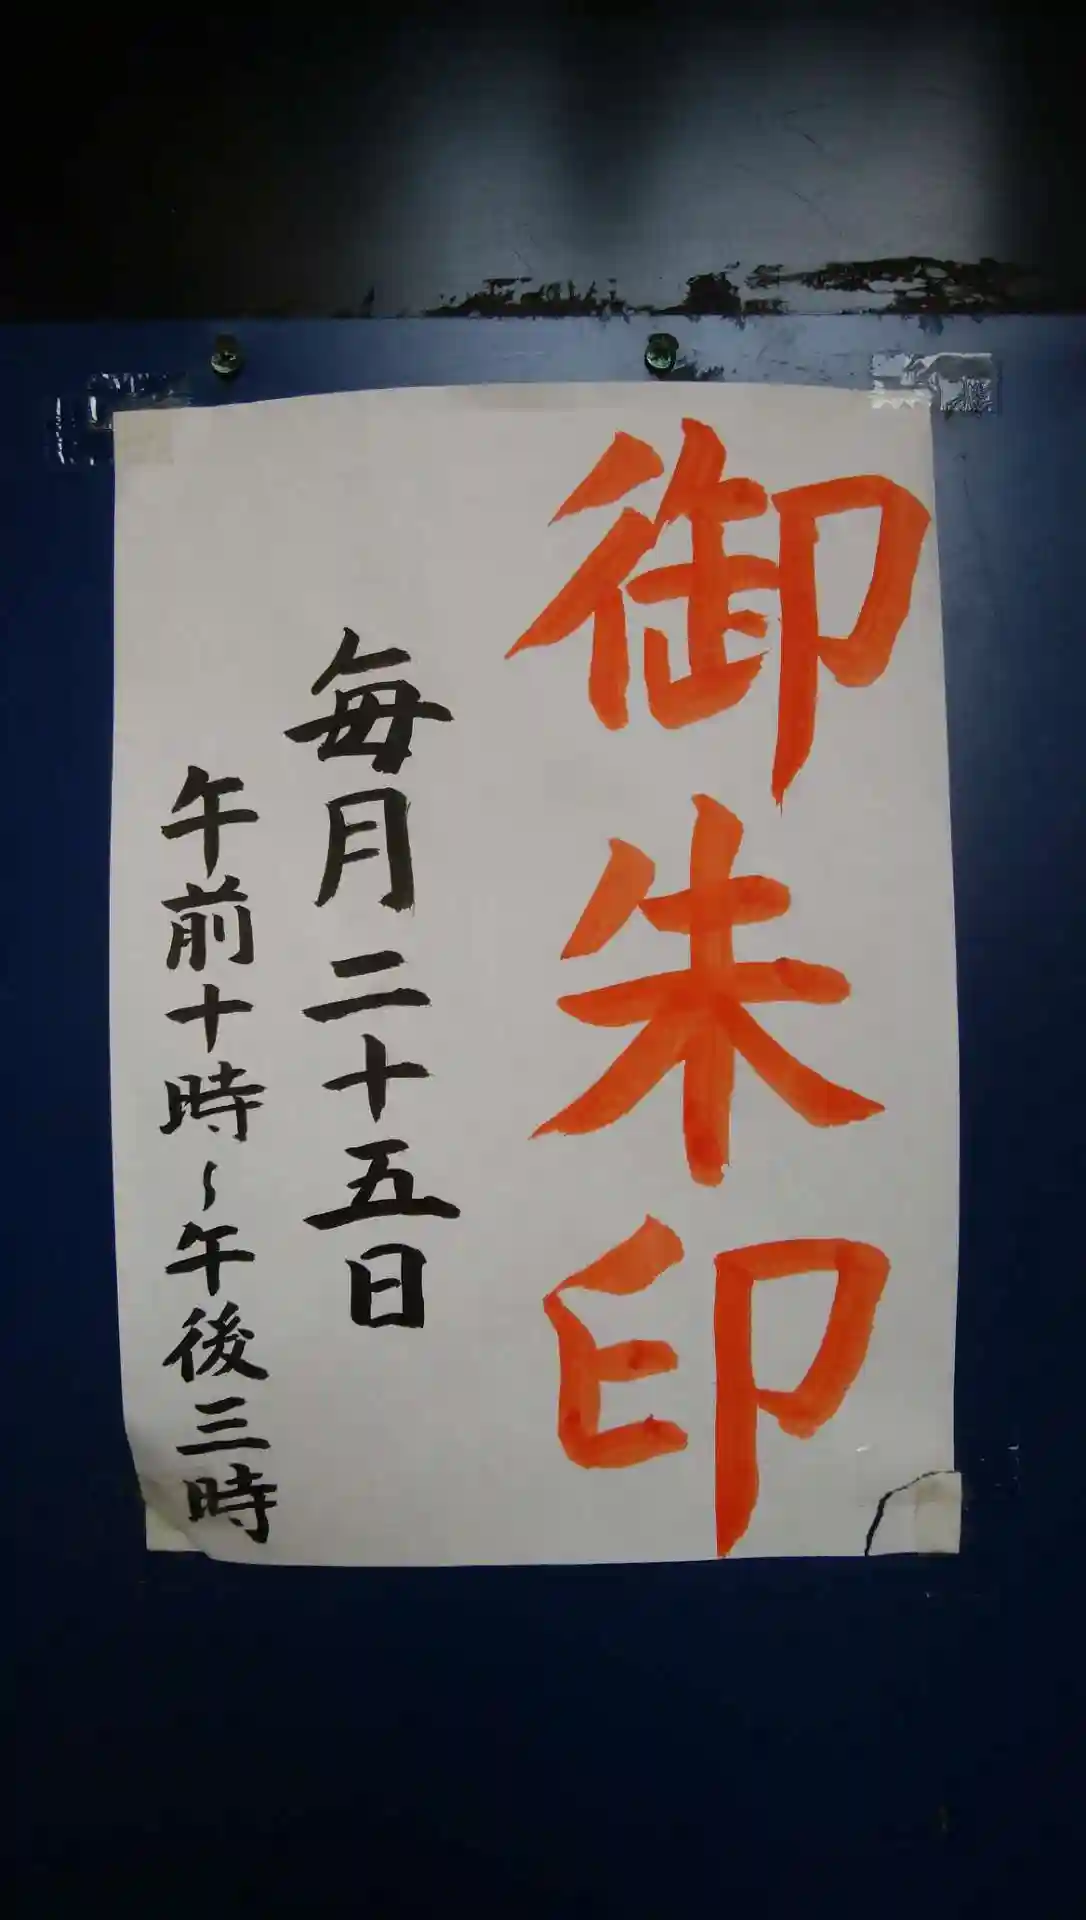 御朱印
毎月二十五日
午前十時~午後三時